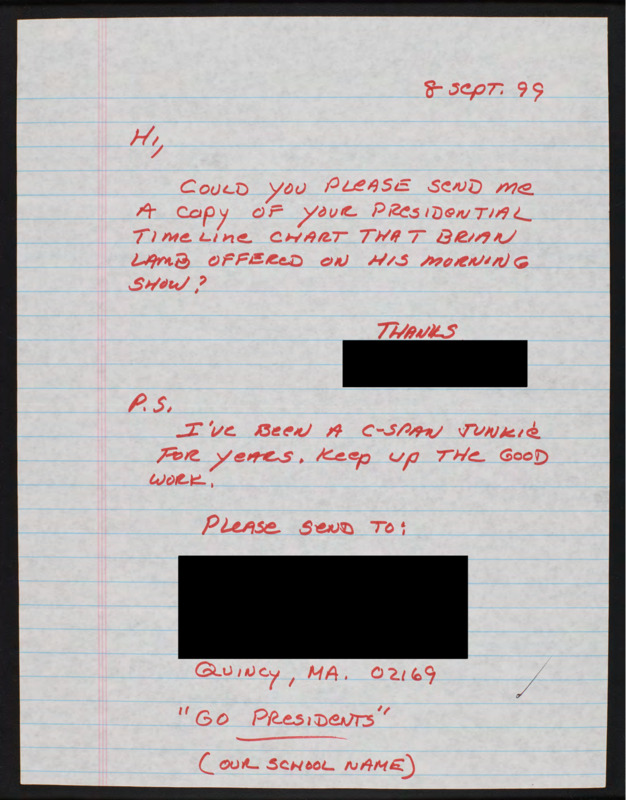 8 SEPT. 99
HI,
COULD YOU PLEASE SEND ME
A COPY OF YOUR PRESIDENTIAL
TIMELINE CHART THAT BRIAN
LAMB OFFERED ON HIS MORNING
SHOW?
THANKS
P.S.
I'VE BEEN A C-SPAN JUNKIE
FOR YEARS. KEEP UP THE GOOD
WORK.
PLEASE SEND TO:
QUINCY, MA. 02169
"GO PRESIDENTS"
(OUR SCHOOL NAME)